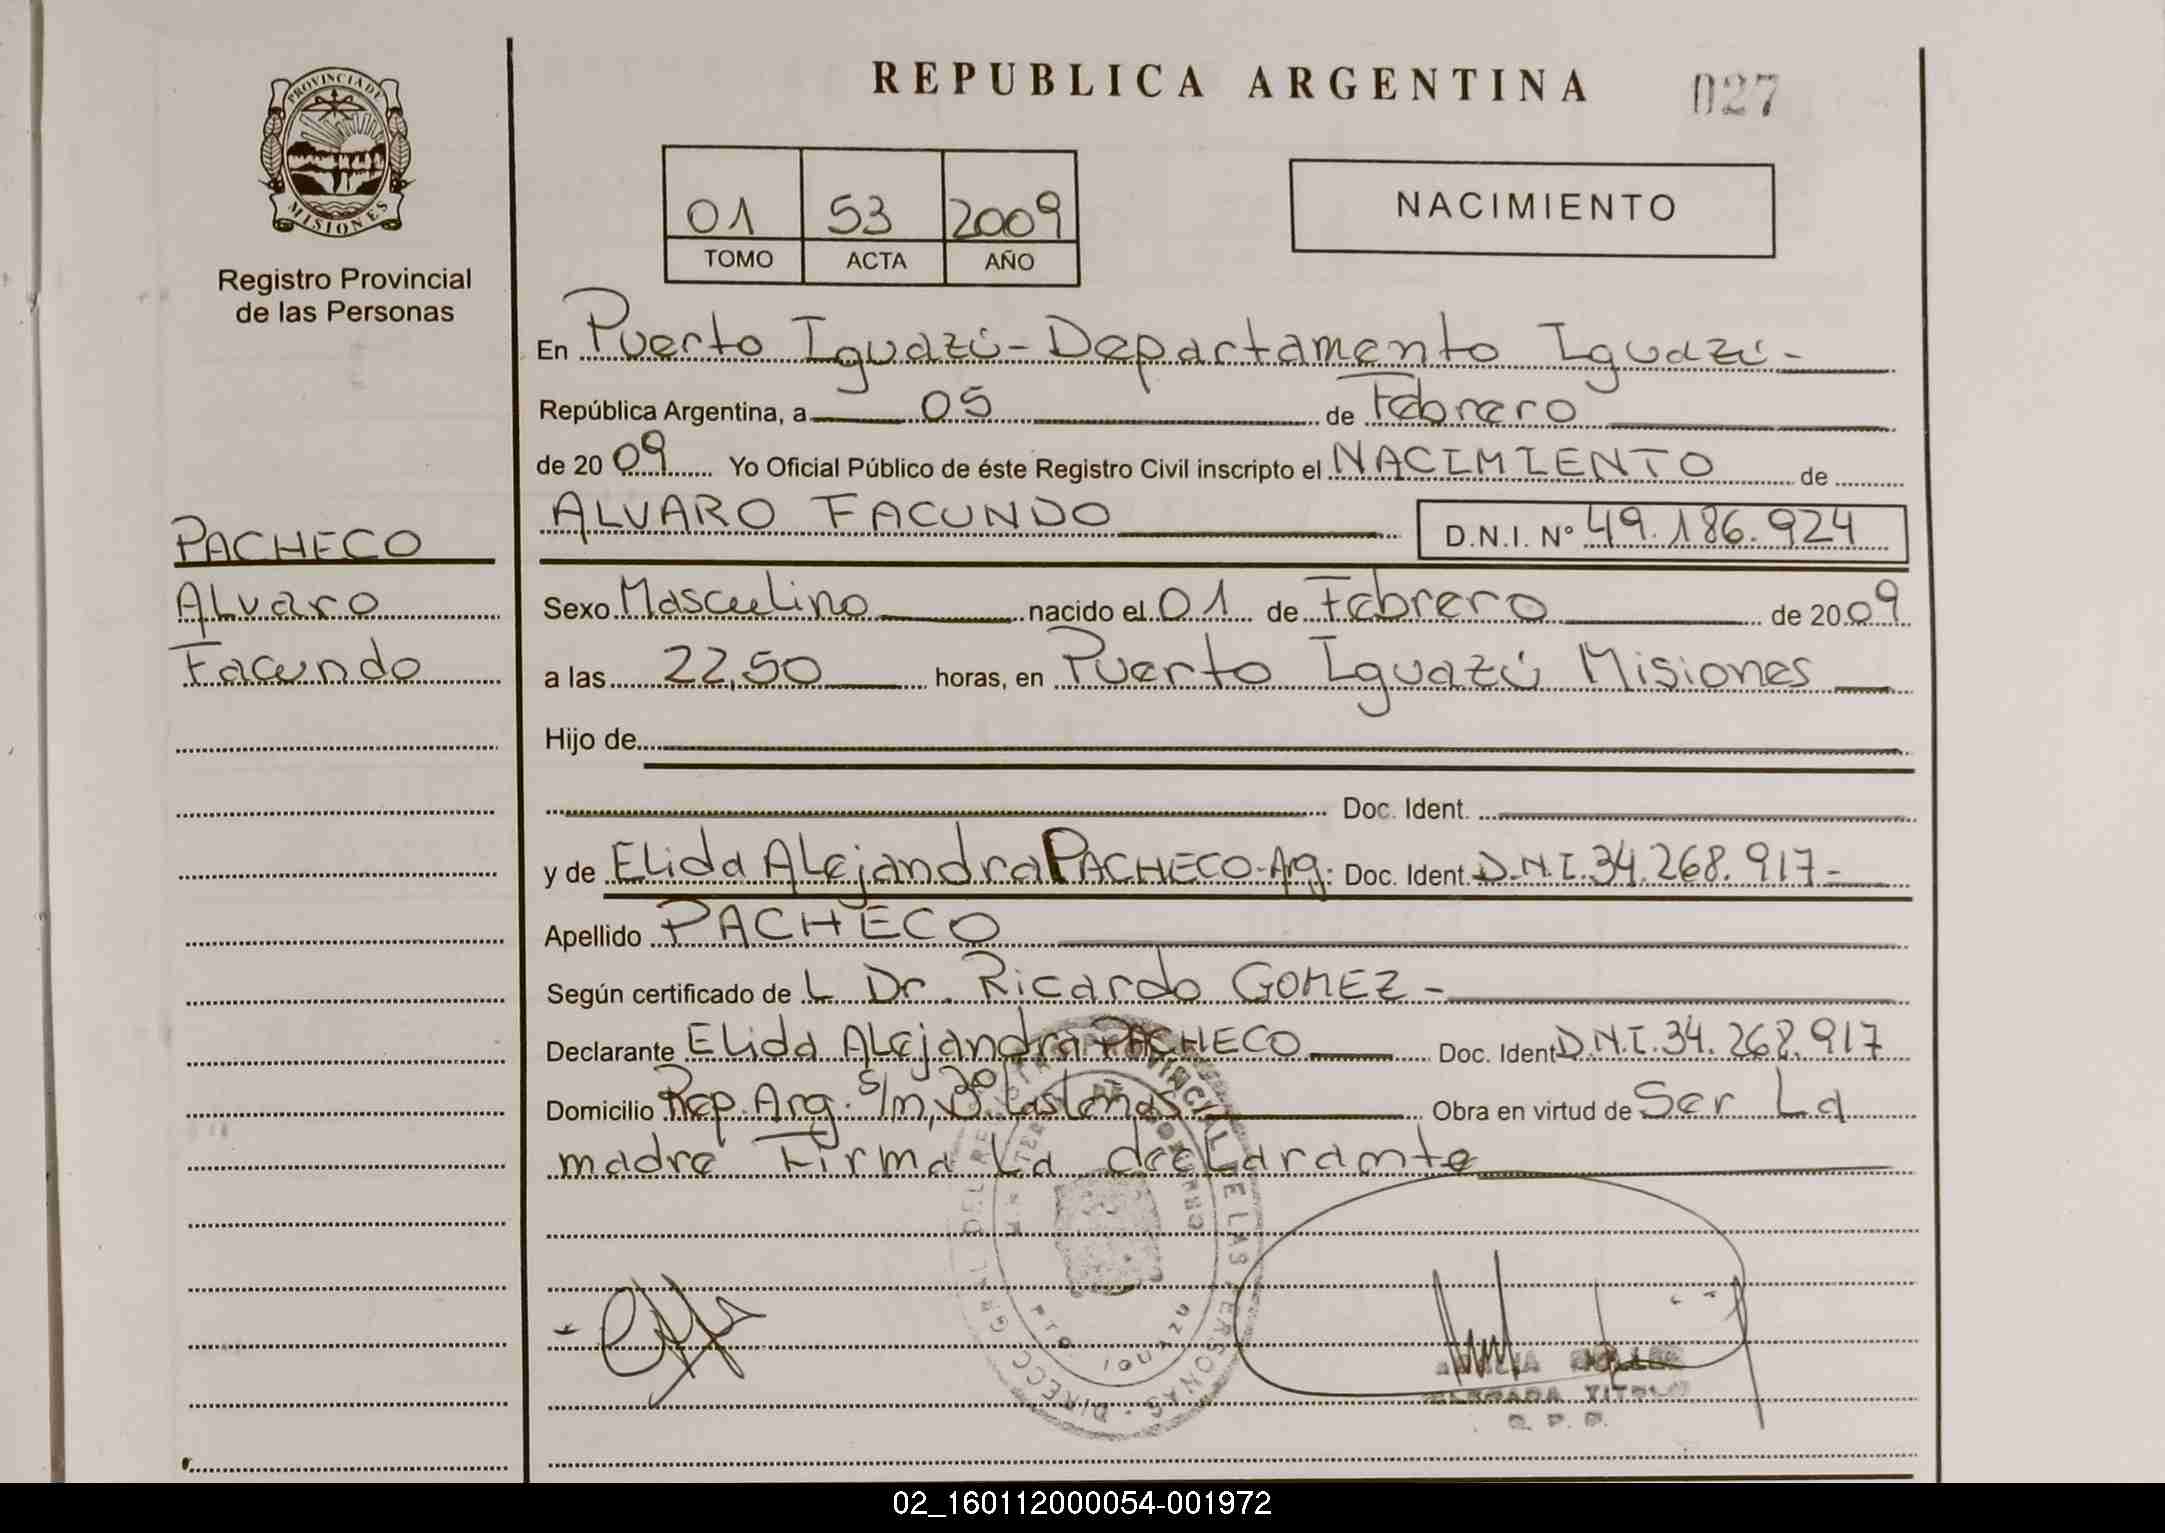 REPUBLICA ARGENTINA
027
PROVINCIA DE
MISIONES
Registro Provincial
de las Personas
01 53 2009
TOMO ACTA AÑO
NACIMIENTO
En Puerto Iguazú-Departamento Iguazú-
República Argentina, a 05 de Febrero
de 2009 Yo Oficial Público de éste Registro Civil inscripto el NACIMIENTO de
ALVARO FACUNDO D.N.I. Nº 49.186.924
PACHECO
Alvaro
Facundo
Sexo Masculino nacido el 01 de Febrero de 2009
a las 22,50 horas, en Puerto Iguazú Misiones
Hijo de
Doc. Ident.
y de Elida Alejandra PACHECO-Arg: Doc. Ident. D.N.I. 34.268.917-
Apellido PACHECO
Según certificado de L Dr. Ricardo GOMEZ -
Declarante Elida Alejandra PACHECO Doc. Ident D.N.I. 34.268.917
Domicilio Rep. Arg. s/m, Obra en virtud de Ser La
madre Firma La decLarante
DE LAS PERSONAS
R. P. P.
02_160112000054-001972